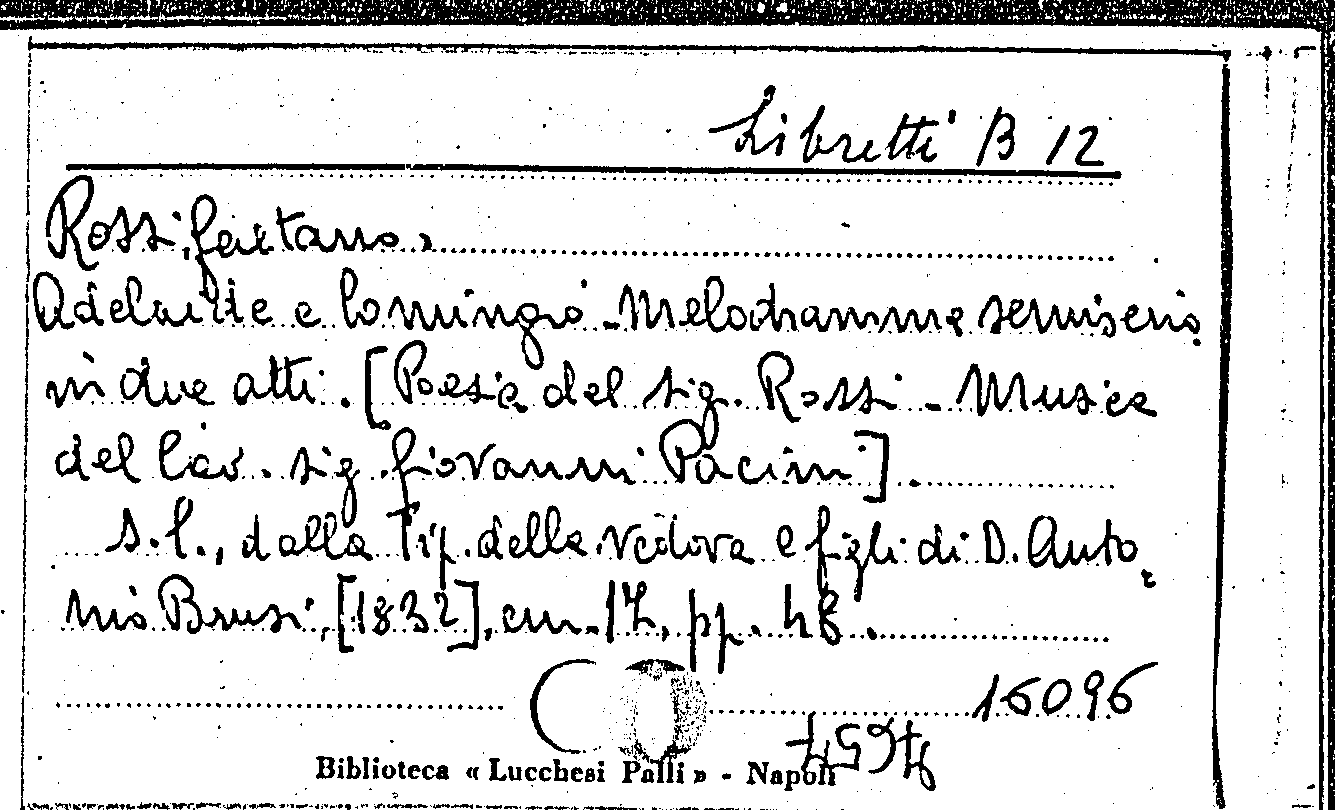 Libretti B 12
Rossi, Gaetano,
Adelaide e Comingio. Melodramma semiserio
in due atti. [Poesia del sig. Rossi - Musica
del Cav. sig. Giovanni Pacini].
s.l., dalla Tip. della vedova e figli di D. Anto-
nio Brusi, [1832], cm. 17, pp. 48.
16096
Biblioteca « Lucchesi Palli » - Napoli